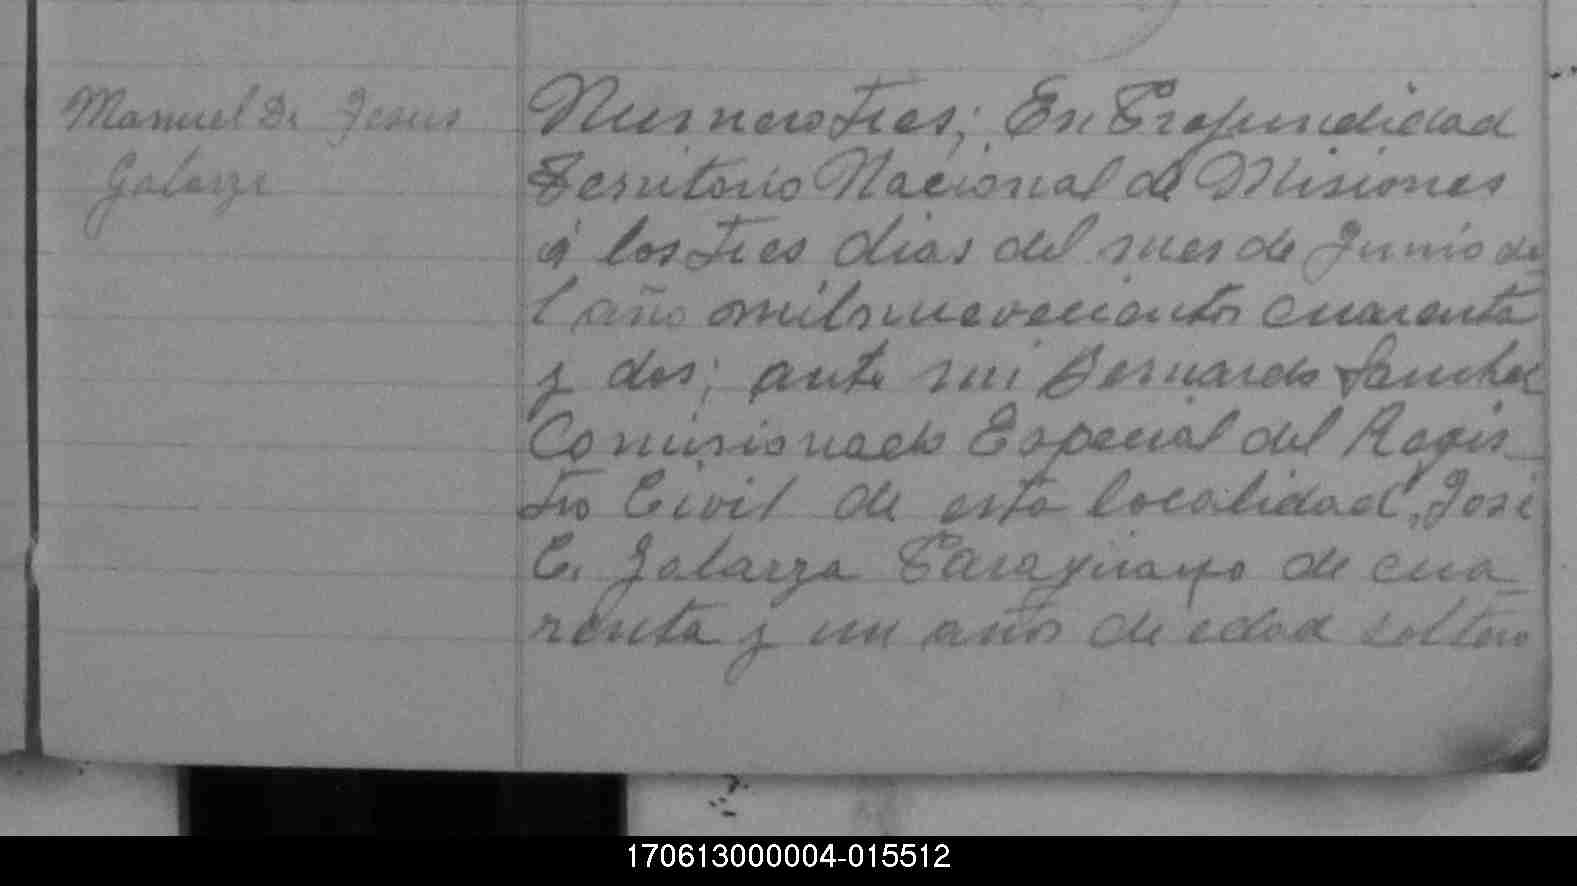 Manuel De Jesus
Galarza
Numero tres; En Profundidad
Territorio Nacional de Misiones
á los tres dias del mes de Junio de
l año mil nuevecientos cuarenta
y dos; ante mi Bernardo Sanchez
Comisionado Especial del Regis
tro Civil de esta localidad, José
C. Galarza Paraguayo de cua
renta y un años de edad soltero
170613000004-015512